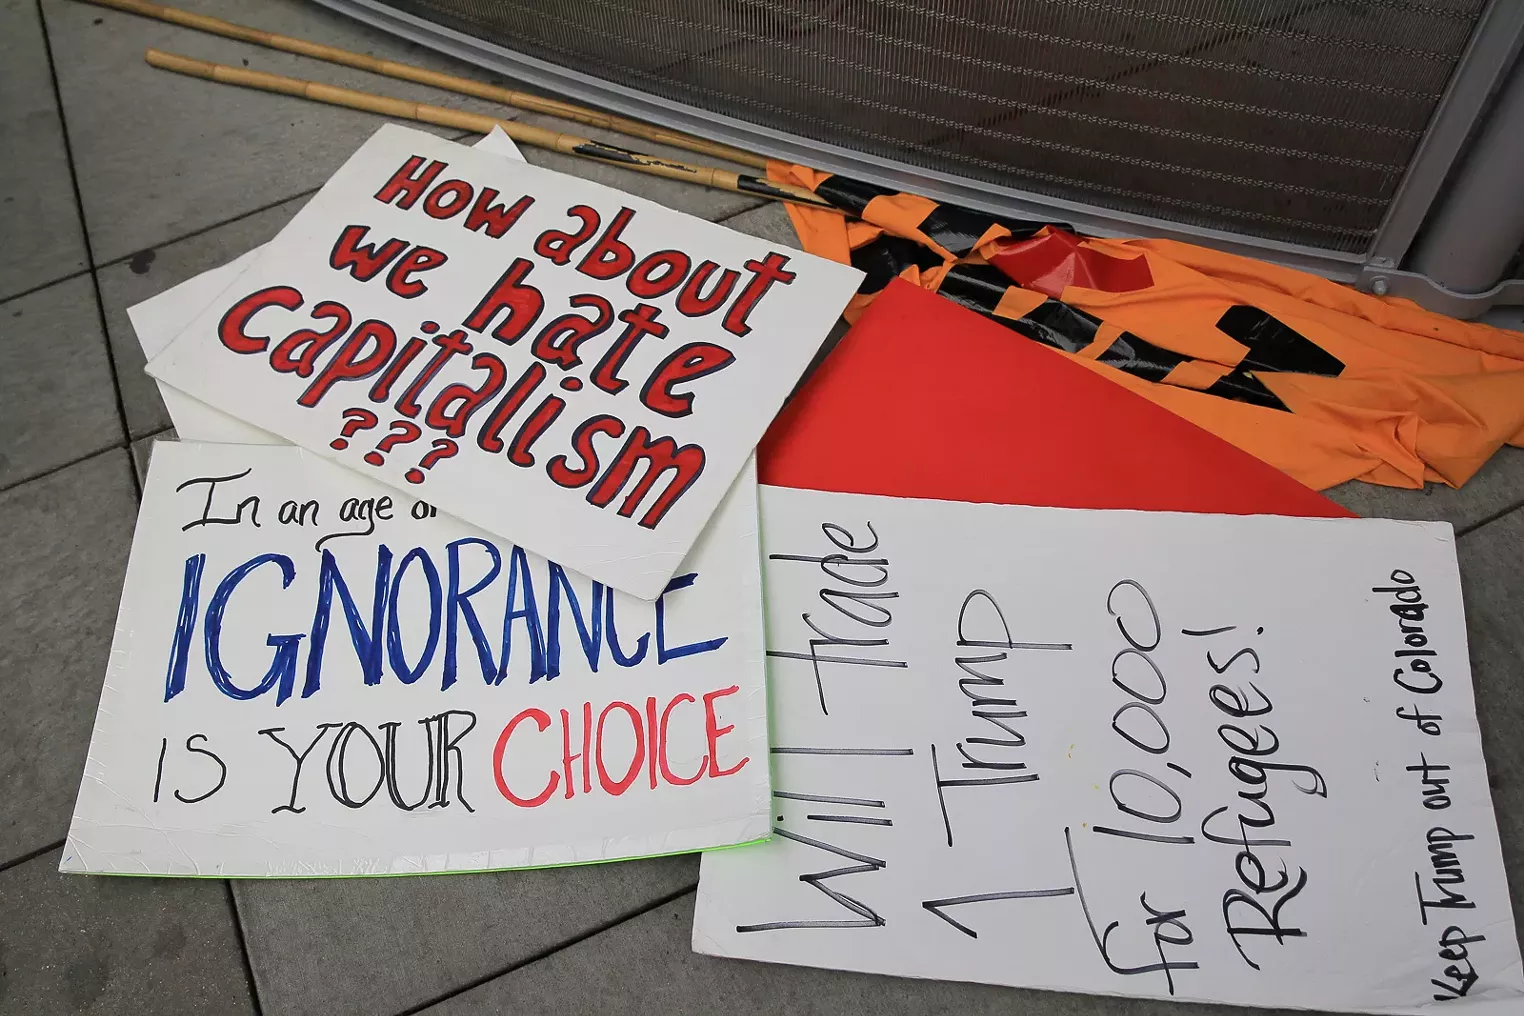 How about
we hate
capitalism
???
In an age
IGNORANCE
is YOUR CHOICE
Will trade
1 Trump
for 10,000
Refugees!
Keep Trump out of Colorado